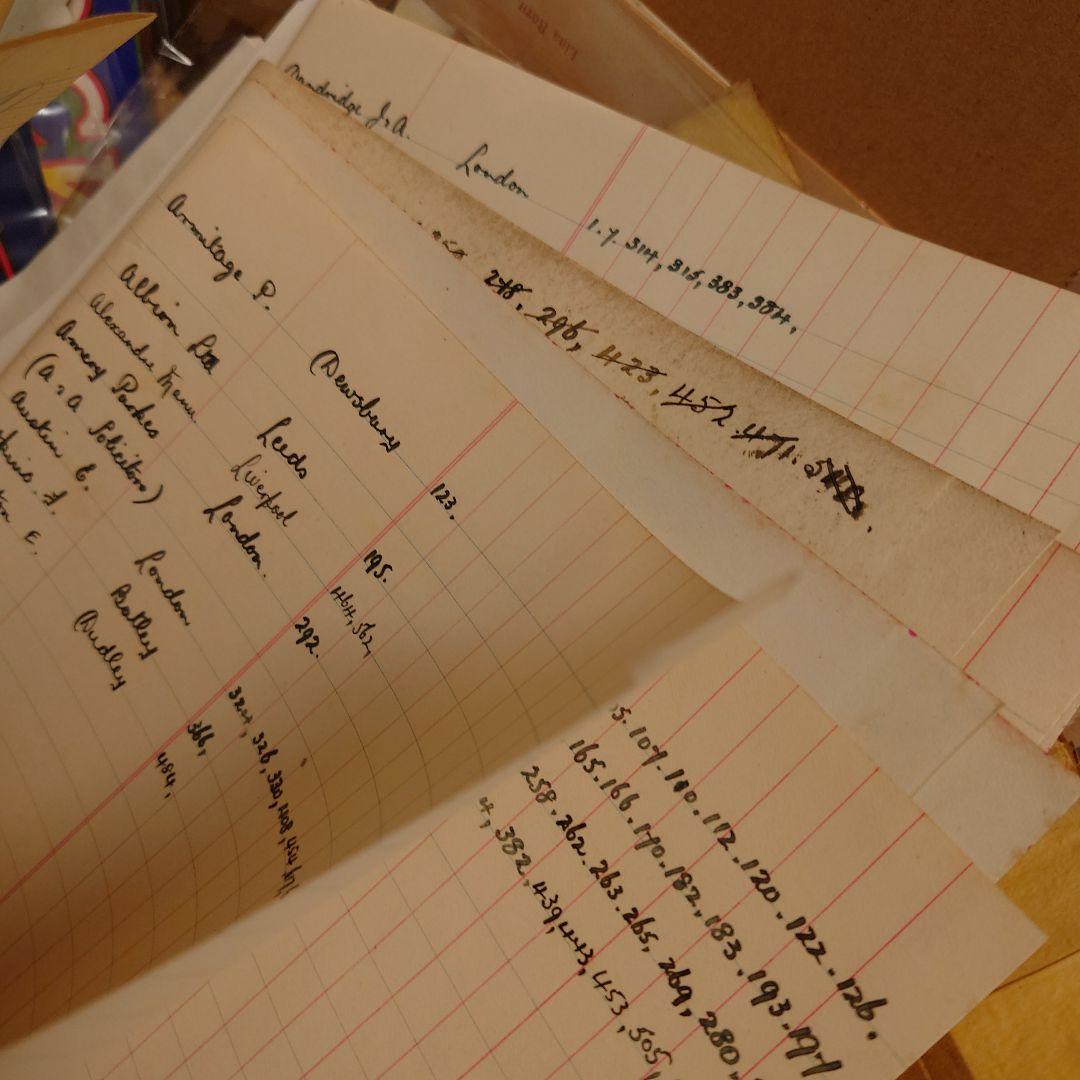 Lina Rorn
J. A. London 1. 7. 314, 315, 383, 384,
248, 296, 423, 452. 471.
Armitage P. (Dewsbury 123.
Albion Leeds 195.
Alexandre Liverpool 464, 562,
Amery Parkes London. 292.
(A. & A. Solicitors)
Austin E. London 324, 326, 330, 408, 454
Batley 366,
E. (Audley 484,
107. 110. 112. 120. 122. 126.
165. 166. 170. 182. 183. 193. 197
258. 262. 263. 265, 269, 280,
382, 439, 443, 453, 505